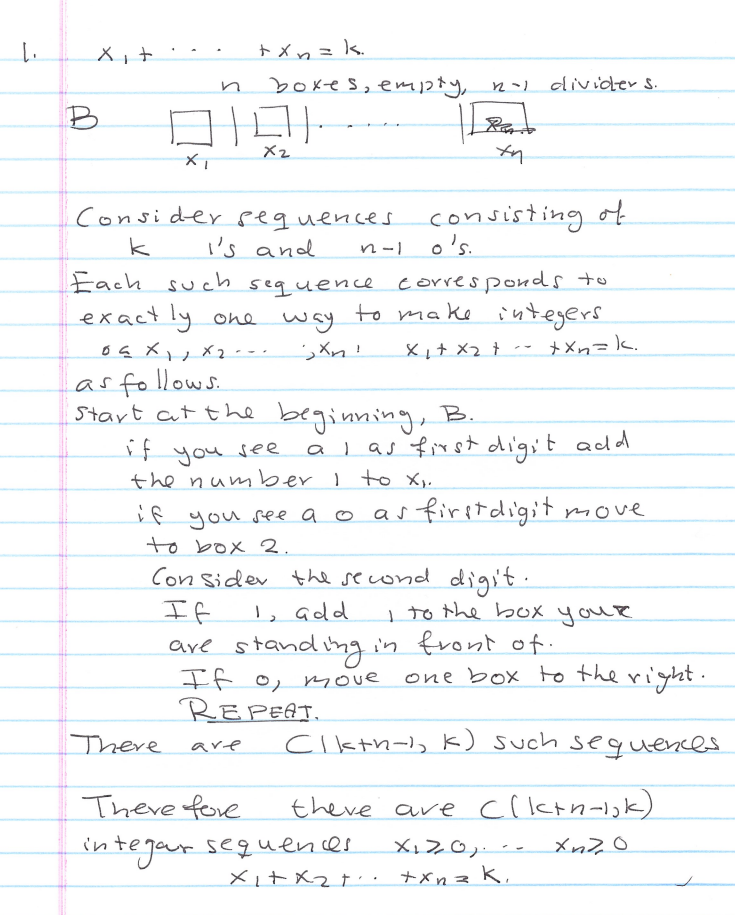 1. x₁ + · · · + xₙ = k.
n boxes, empty, n-1 dividers.
B | | · · · · · |
x₁ x₂ xₙ
Consider sequences consisting of
k 1's and n-1 0's.
Each such sequence corresponds to
exactly one way to make integers
0 ≤ x₁, x₂ --- , xₙ ! x₁ + x₂ + -- + xₙ = k.
as follows.
Start at the beginning, B.
if you see a 1 as first digit add
the number 1 to x₁.
if you see a 0 as first digit move
to box 2.
Consider the second digit.
If 1, add 1 to the box you
are standing in front of.
If 0, move one box to the right.
REPEAT.
There are C(k+n-1, k) such sequences
Therefore there are C(k+n-1, k)
integar sequences x₁ ≥ 0, · -- xₙ ≥ 0
x₁ + x₂ + · · + xₙ = k.